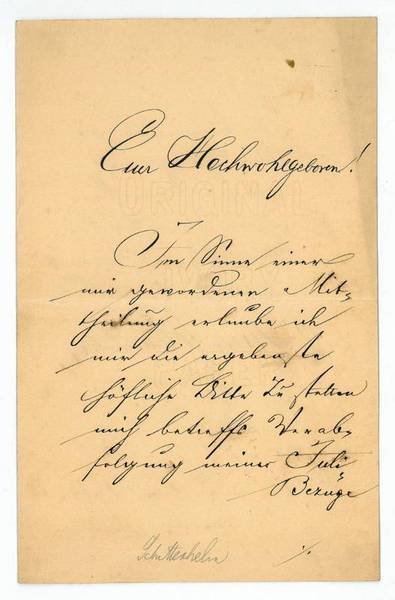 Euer Hochwohlgeboren!
Im Sinne einer
mir gewordenen Mit-
theilung erlaube ich
mir die ergebenste
höfliche Bitte zu stellen
mich betreffs Verab-
folgung meiner Juli
Bezüge
./.